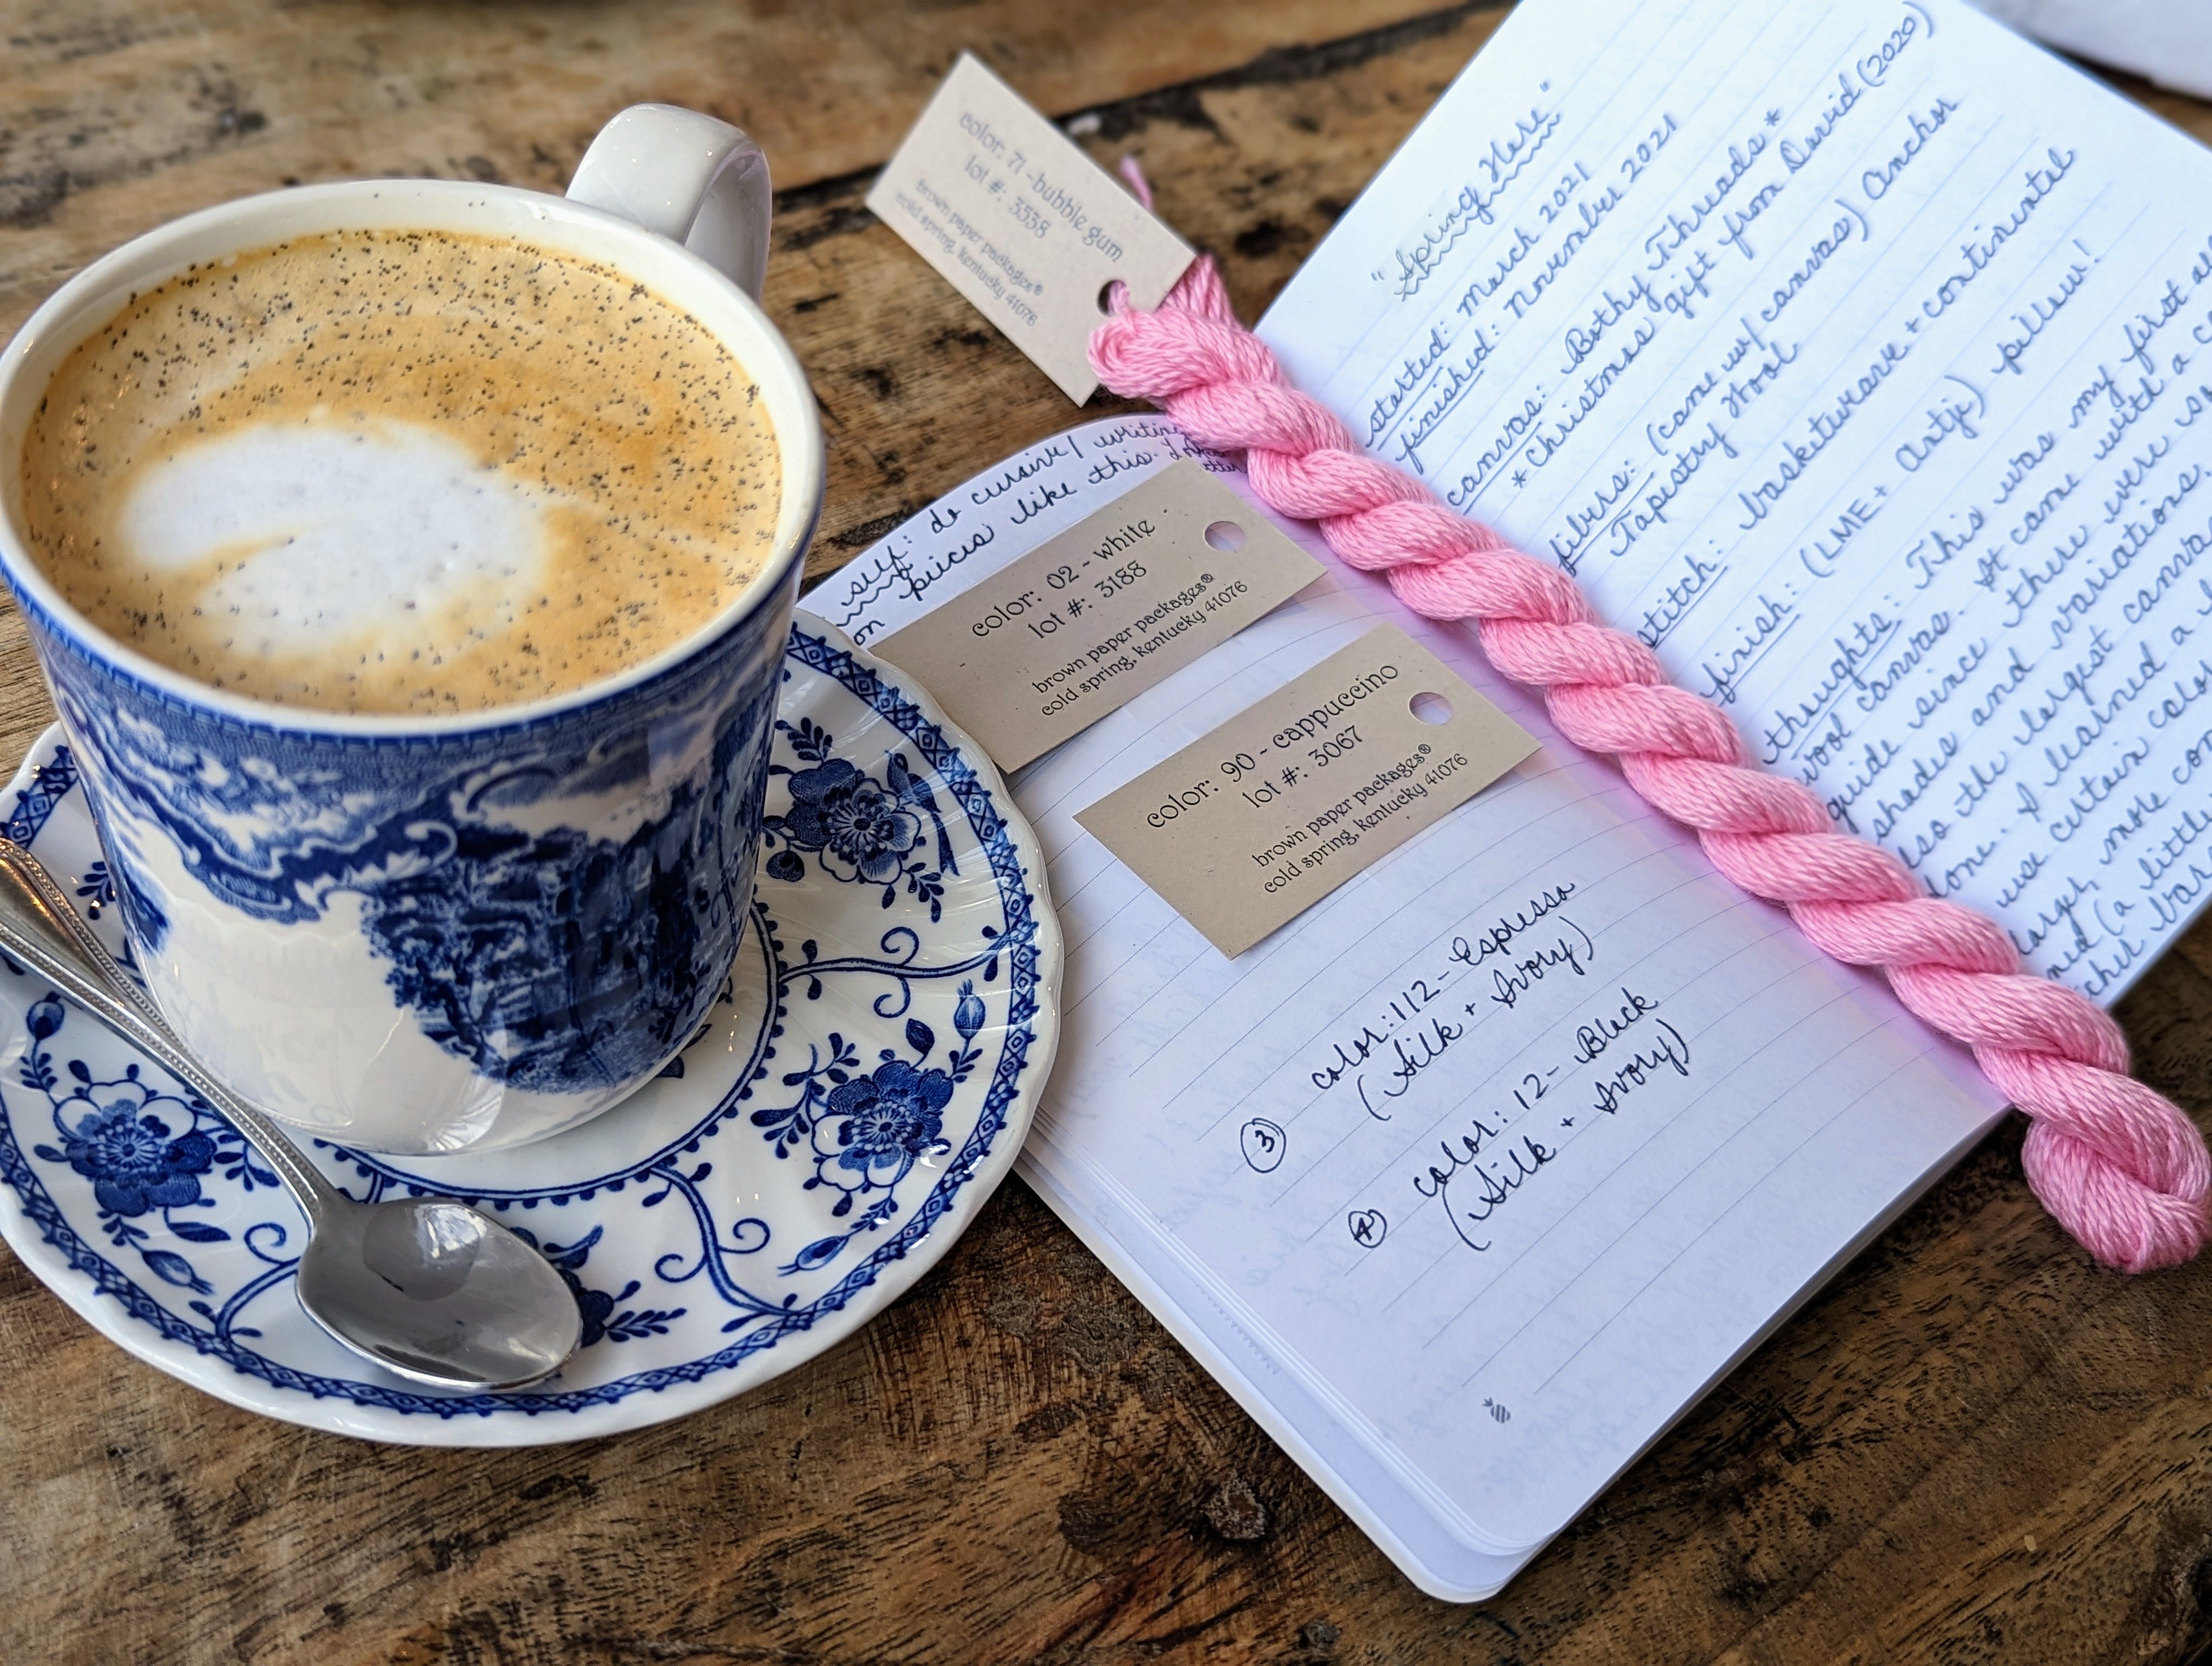 color: 71 - bubble gum
lot #: 3538
brown paper packages®
cold spring, kentucky 41076
self: do cursive/ writing
on pieces like this. I
color: 02 - white
lot #: 3188
brown paper packages®
cold spring, kentucky 41076
color: 90 - cappuccino
lot #: 3067
brown paper packages®
cold spring, kentucky 41076
3 color: 112 - Espresso
(Silk + Ivory)
4 color: 12 - Black
(Silk + Ivory)
"Spring Here"
started: March 2021
finished: November 2021
canvas: Bothy Threads *
* Christmas gift from David (2020)
fibers: (came w/ canvas) Anchor
Tapestry Wool
stitch: basketweave + continental
finish: (LME + Artji) pillow!
thoughts: This was my first
wool canvas. It came with a
guide since there were
shades and variations.
so the largest canvas
done. I learned a
use certain colo
large, more co
ned (a little